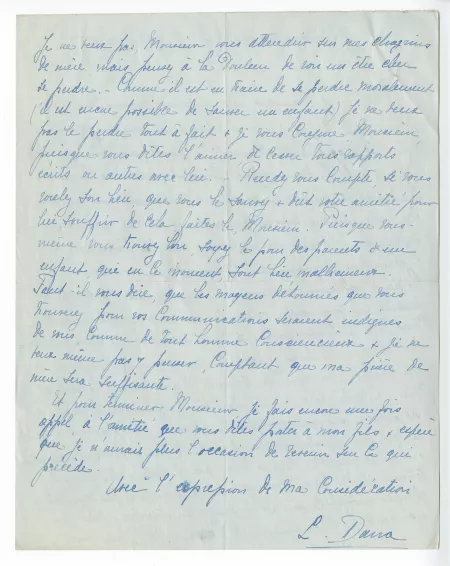 Je ne veux pas, Monsieur vous attendrir sur mes chagrins
de mère, mais pensez à la douleur de voir un être cher
se perdre. - Comme il est en train de se perdre moralement
(il est encore possible de sauver un enfant) Je ne veux
pas le perdre tout à fait & je vous conjure Monsieur,
puisque vous dites l'aimer de cesser tous rapports
écrits ou autres avec lui. - Rendez vous compte, si vous
voulez son bien, que vous le sauvez & dût votre amitié pour
lui souffrir de cela faites le, Monsieur. Puisque vous-
même vous trouvez bon, soyez le pour des parents & un
enfant, qui en ce moment, sont bien malheureux.
Faut-il vous dire, que les moyens détournés que vous
trouvez pour vos communications seraient indignes
de vous comme de tout homme consciencieux & je ne
veux même pas y penser, comptant que ma prière de
mère sera suffisante.
Et pour terminer Monsieur je fais encore une fois
appel à l'amitié que vous dites porter à mon fils & espère
que je n'aurais plus l'occasion de revenir sur ce qui
précède.
Avec l'expression de ma considération
L. Danna